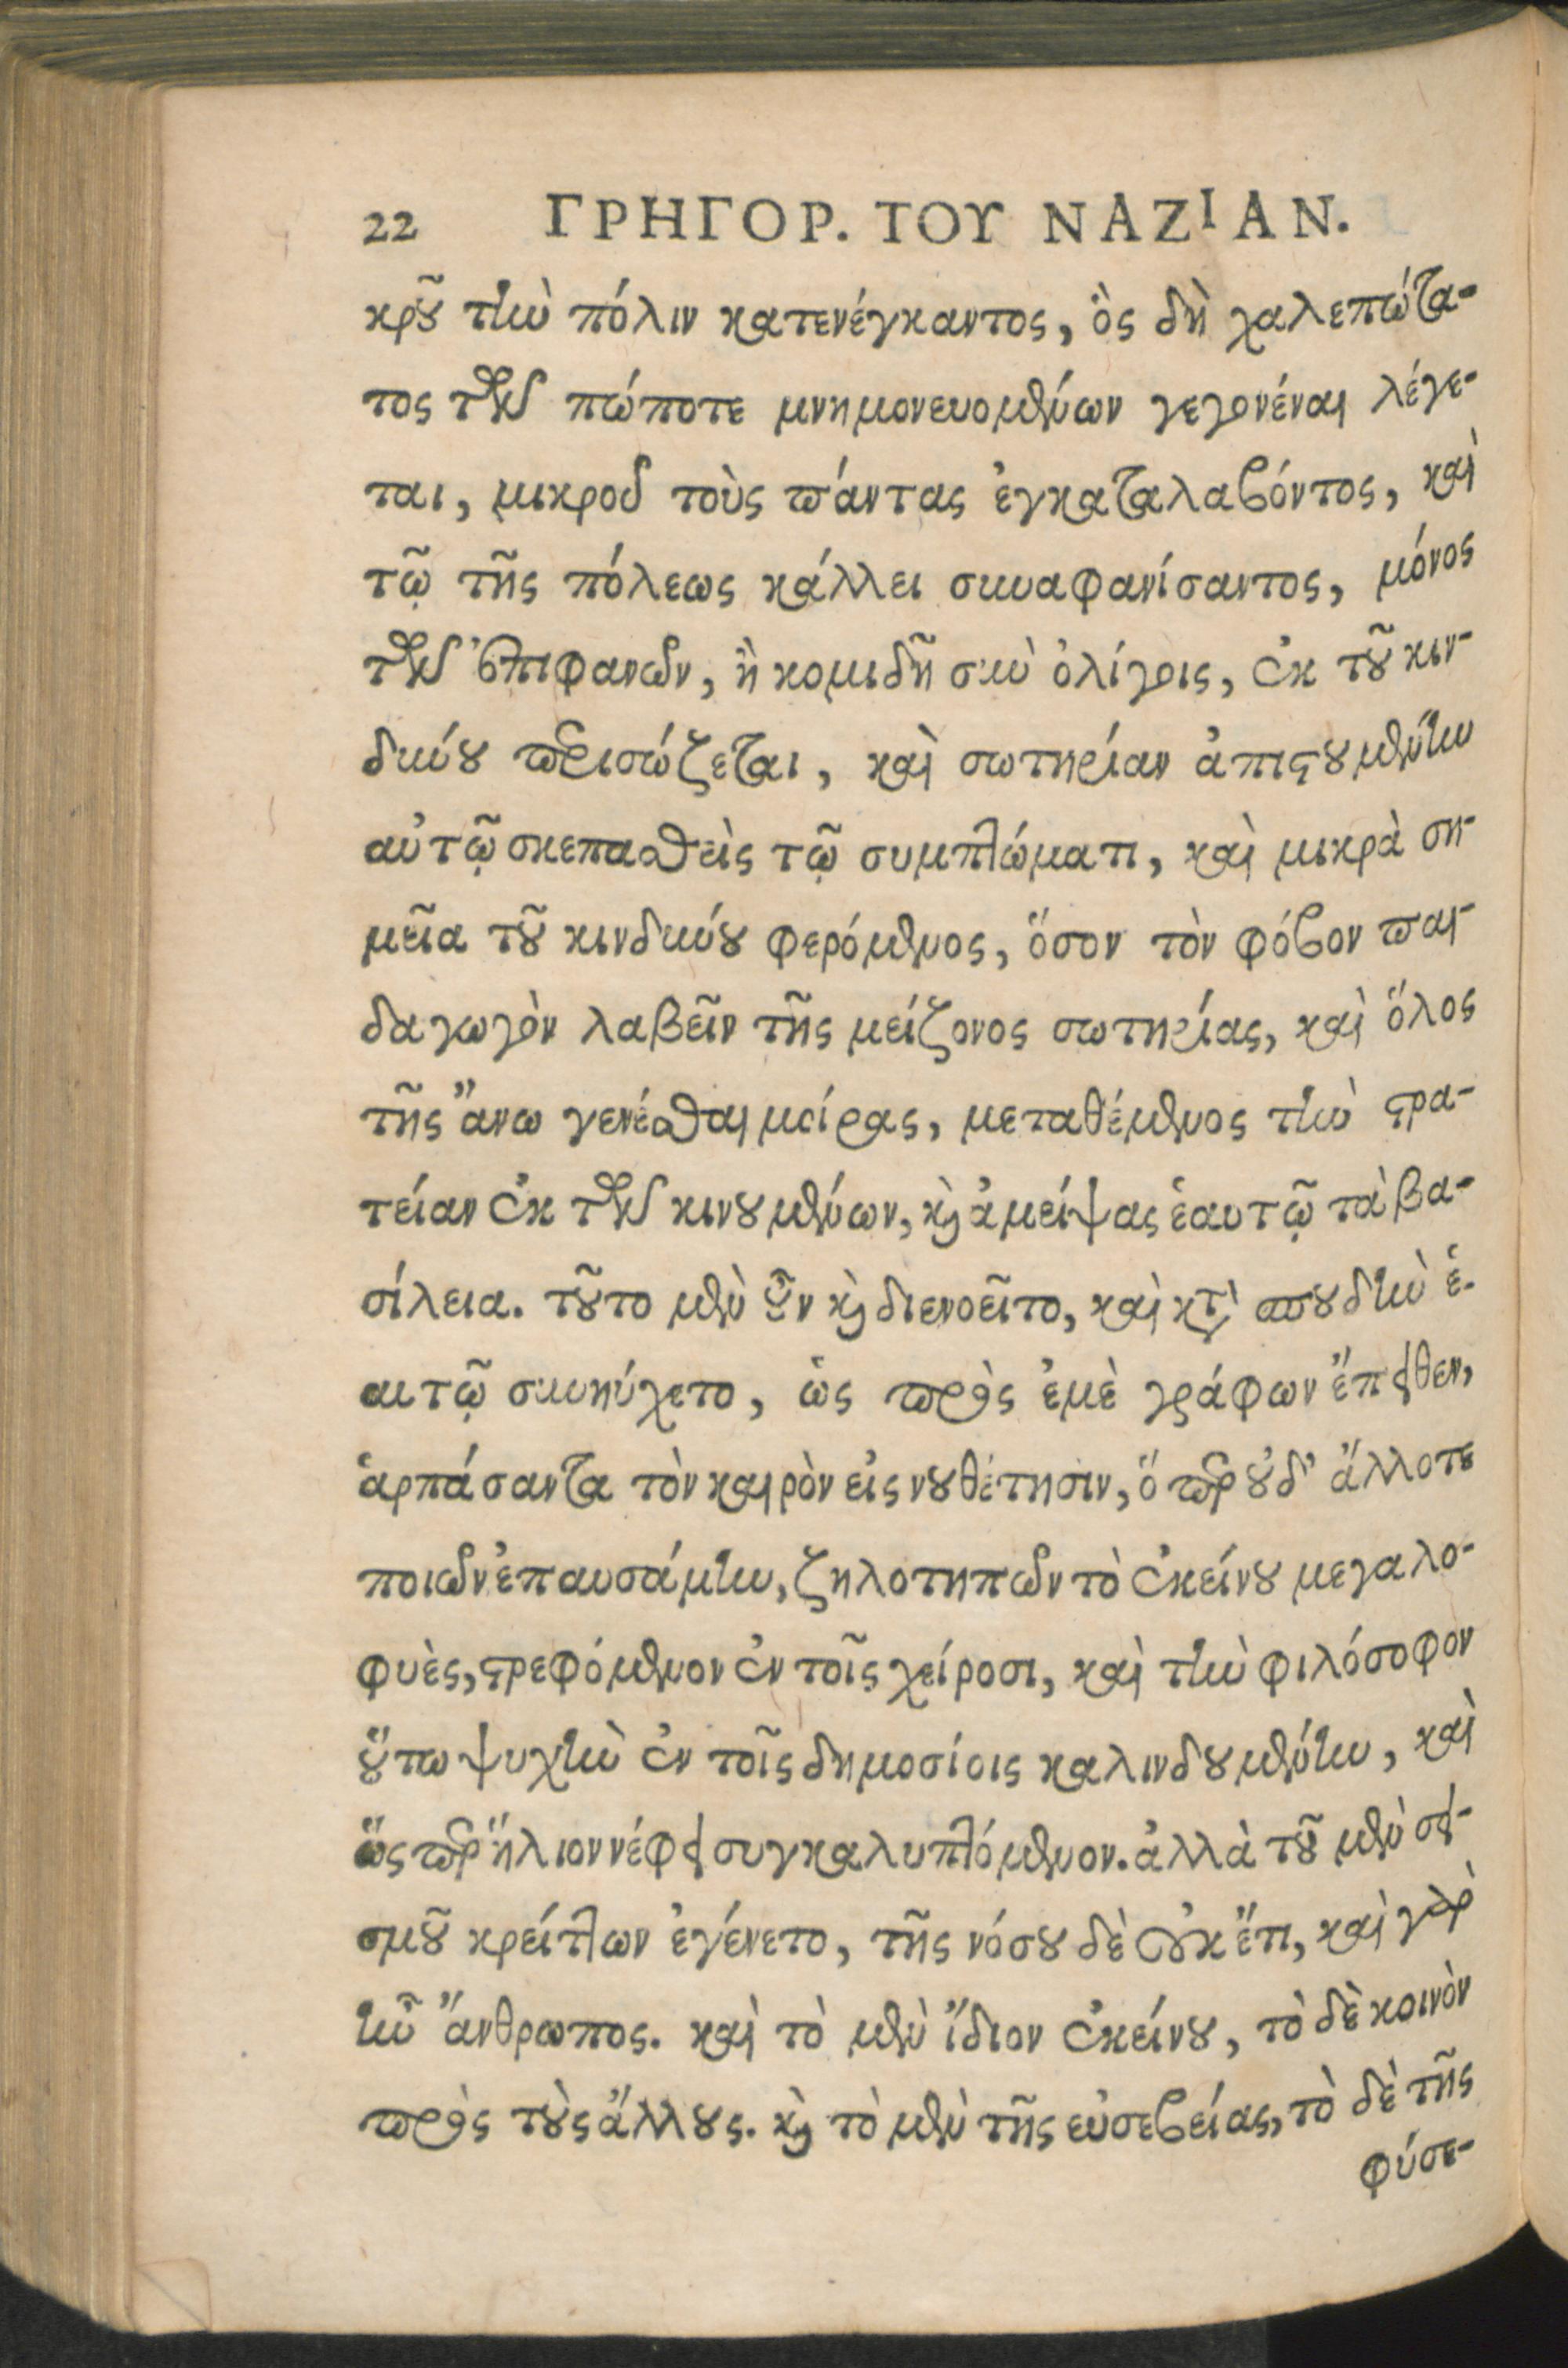 22 ΓΡΗΓΟΡ. ΤΟΥ ΝΑΖΙΑΝ.
κροῦ τὴν πόλιν κατενέγκαντος, ὃς δὴ χαλεπώτα-
τος τῶν πώποτε μνημονευομένων γεγονέναι λέγε-
ται, μικροῦ τοὺς πάντας ἐγκαταλαβόντος, καὶ
τῷ τῆς πόλεως κάλλει συναφανίσαντος, μόνος
τῶν ἐπιφανῶν, ἢ κομιδῆ σὺν ὀλίγοις, ἐκ τοῦ κιν-
δύνου περισώζεται, καὶ σωτηρίαν ἀπιστουμένην
αὐτῷ σκεπασθεὶς τῷ συμπτώματι, καὶ μικρὰ ση-
μεῖα τοῦ κινδύνου φερόμενος, ὅσον τὸν φόβον παι-
δαγωγὸν λαβεῖν τῆς μείζονος σωτηρίας, καὶ ὅλος
τῆς ἄνω γενέσθαι μοίρας, μεταθέμενος τὴν στρα-
τείαν ἐκ τῶν κινουμένων, καὶ ἀμείψας ἑαυτῷ τὰ βα-
σίλεια. τοῦτο μὲν οὖν καὶ διενοεῖτο, καὶ κατὰ σπουδὴν ἑ-
αυτῷ συνηύχετο, ὡς πρὸς ἐμὲ γράφων ἔπειθεν,
ἁρπάσαντα τὸν καιρὸν εἰς νουθέτησιν, ὅπερ οὐδ' ἄλλοτε
ποιῶν ἐπαυσάμην, ζηλοτηπῶν τὸ ἐκείνου μεγαλο-
φυὲς, στρεφόμενον ἐν τοῖς χείροσι, καὶ τὴν φιλόσοφον
οὕτω ψυχὴν ἐν τοῖς δημοσίοις καλινδουμένην, καὶ
ὥσπερ ἥλιον νέφει συγκαλυπτόμενον. ἀλλὰ τοῦ μὲν σει-
σμοῦ κρείττων ἐγένετο, τῆς νόσου δὲ οὐκ ἔτι, καὶ γὰρ
ἦν ἄνθρωπος. καὶ τὸ μὲν ἴδιον ἐκείνου, τὸ δὲ κοινὸν
πρὸς τοὺς ἄλλους. καὶ τὸ μὲν τῆς εὐσεβείας, τὸ δὲ τῆς
φύσε-